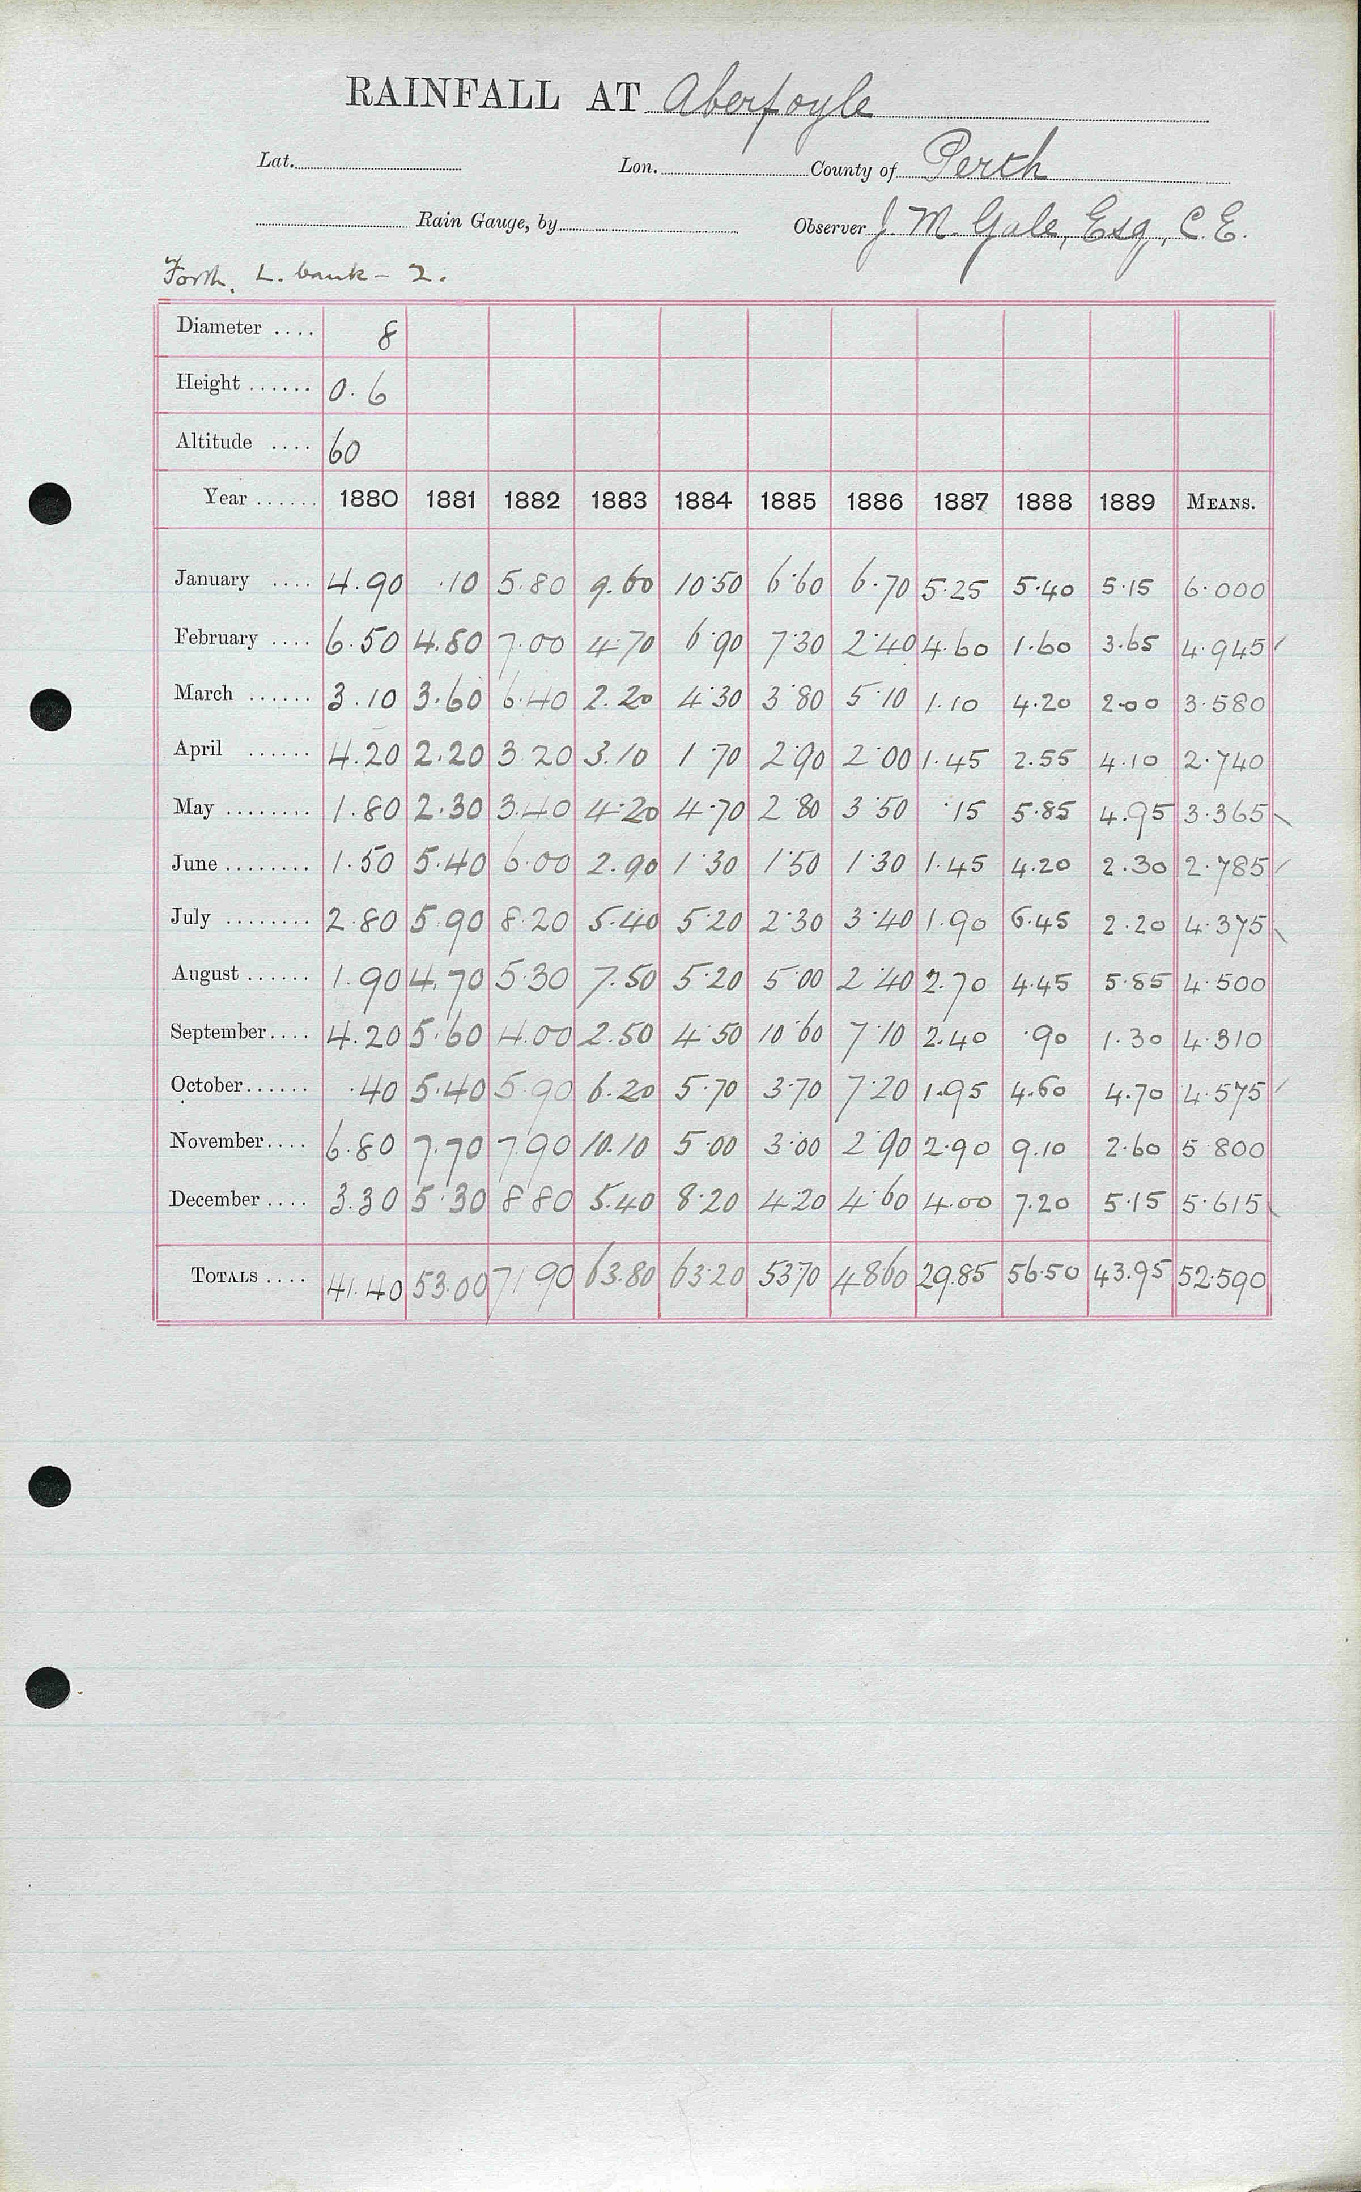 RAINFALL AT Aberfoyle
Lat. Lon. County of Perth
Rain Gauge, by Observer J. M. Gale, Esq, C.E.
Forth. L. bank - 2.
Diameter .... 8
Height ...... 0.6
Altitude .... 60
Year ...... 1880 1881 1882 1883 1884 1885 1886 1887 1888 1889 MEANS.
January .... 4.90 .10 5.80 9.60 10.50 6.60 6.70 5.25 5.40 5.15 6.000
February .... 6.50 4.80 7.00 4.70 6.90 7.30 2.40 4.60 1.60 3.65 4.945
March ...... 3.10 3.60 6.40 2.20 4.30 3.80 5.10 1.10 4.20 2.00 3.580
April ...... 4.20 2.20 3.20 3.10 1.70 2.90 2.00 1.45 2.55 4.10 2.740
May ........ 1.80 2.30 3.40 4.20 4.70 2.80 3.50 .15 5.85 4.95 3.365
June ........ 1.50 5.40 6.00 2.90 1.30 1.50 1.30 1.45 4.20 2.30 2.785
July ........ 2.80 5.90 8.20 5.40 5.20 2.30 3.40 1.90 6.45 2.20 4.375
August ...... 1.90 4.70 5.30 7.50 5.20 5.00 2.40 2.70 4.45 5.85 4.500
September.... 4.20 5.60 4.00 2.50 4.50 10.60 7.10 2.40 .90 1.30 4.310
October...... .40 5.40 5.90 6.20 5.70 3.70 7.20 1.95 4.60 4.70 4.575
November.... 6.80 7.70 7.90 10.10 5.00 3.00 2.90 2.90 9.10 2.60 5.800
December .... 3.30 5.30 8.80 5.40 8.20 4.20 4.60 4.00 7.20 5.15 5.615
TOTALS .... 41.40 53.00 71.90 63.80 63.20 53.70 48.60 29.85 56.50 43.95 52.590